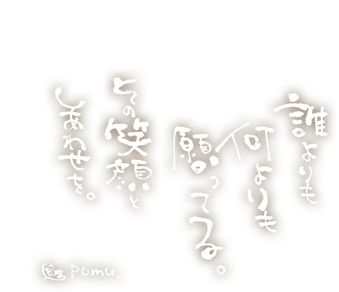 誰よりも
何よりも
願ってる。
とての笑顔と
しあわせを。
pomu.